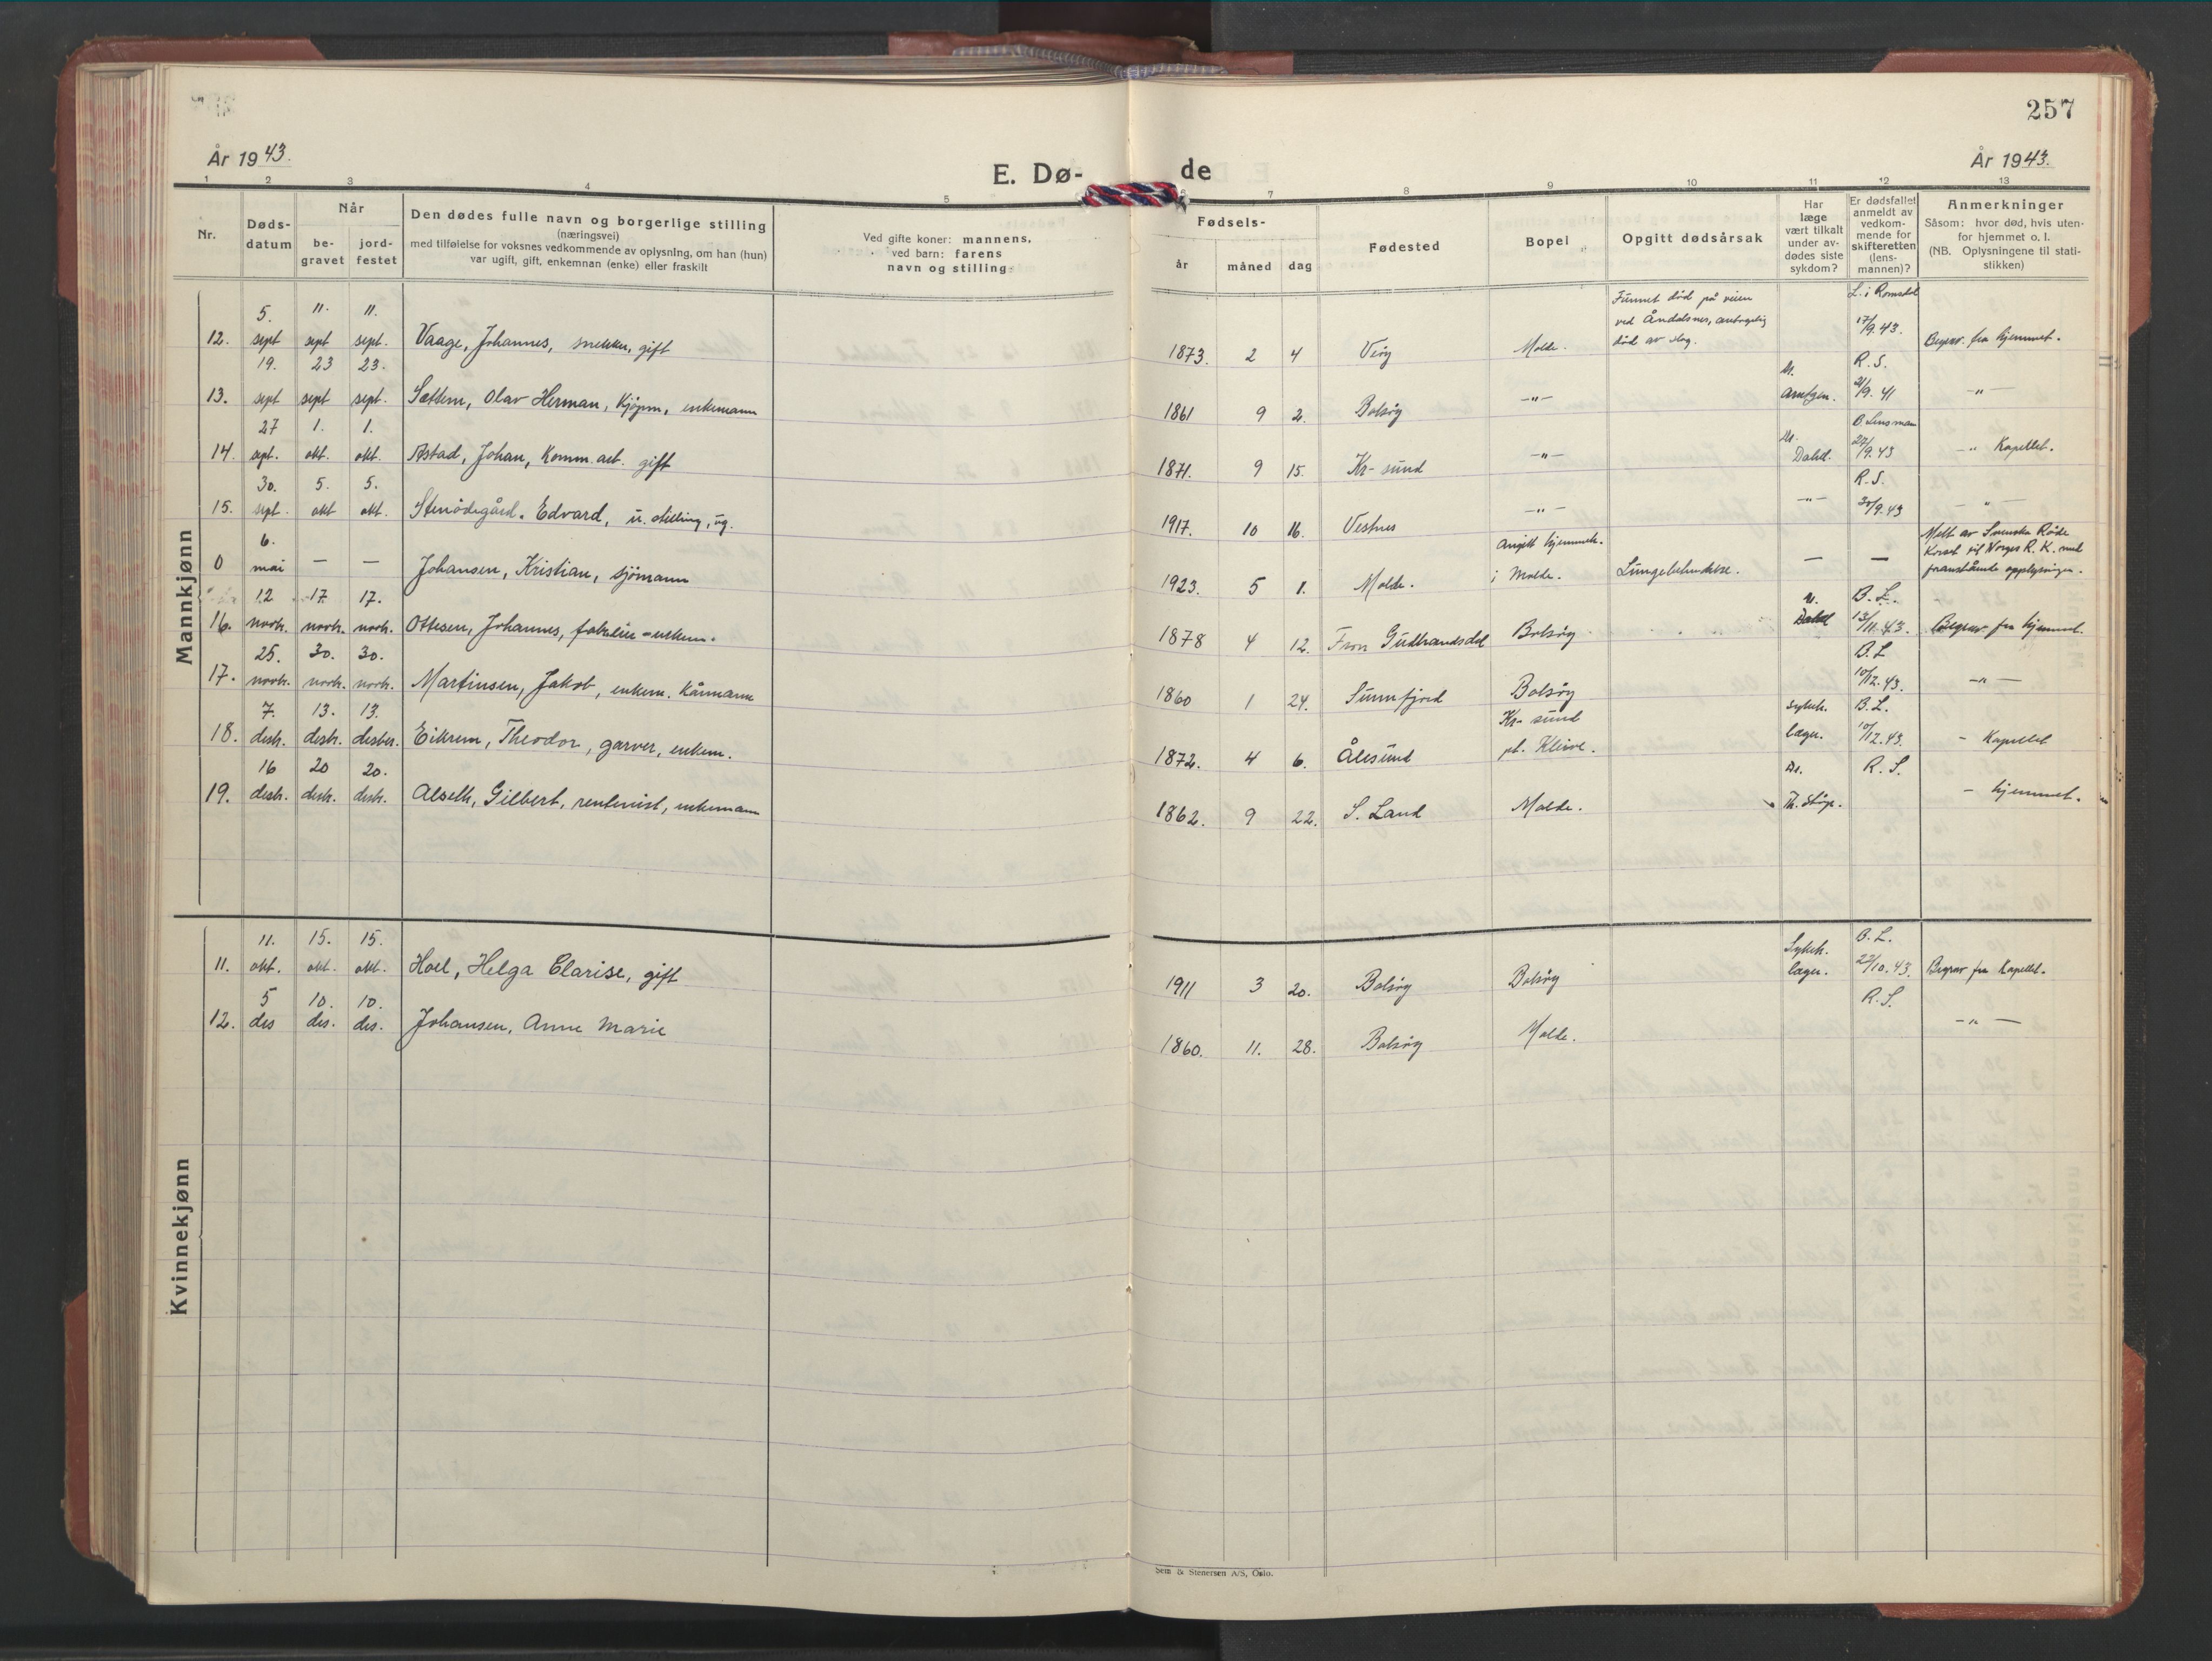 257
År 1943.
E. Dø-
de
År 1943.
1 2 3 4 5 7 8 9 10 11 12 13
Nr.
Døds-
datum
Når
be-
gravet
jord-
festet
Den dødes fulle navn og borgerlige stilling
(næringsvei)
med tilføielse for voksnes vedkommende av oplysning, om han (hun)
var ugift, gift, enkemnan (enke) eller fraskilt
Ved gifte koner: mannens,
ved barn: farens
navn og stilling
Fødsels-
år måned dag
Fødested
Bopel
Opgitt dødsårsak
Har
læge
vært tilkalt
under av-
dødes siste
sykdom?
Er dødsfallet
anmeldt av
vedkom-
mende for
skifteretten
(lens-
mannen)?
Anmerkninger
Såsom: hvor død, hvis uten-
for hjemmet o. l.
(NB. Oplysningene til stati-
stikken)
Mannkjønn
12. 5. sept 11. sept 11. sept. Vaage, Johannes, snekker, gift 1873. 2 4 Veøy Molde.
Funnet død på veien
ved Åndalsnes, antagelig
død av slag.
L. i Romsdal
17/9.43.
Begrav. fra hjemmet.
13. 19. sept 23 sept 23. sept. Sættem, Olav Herman, Kjøpm, enkemann 1861 9 2. Bolsøy —"—
R. S.
21/9.41
—"—
14. 27 sept. 1. okt. 1. okt. Astad, Johan, Komm. arb. gift 1871. 9 15. Kr-sund —"— Dr. Dahl.
B. Lensman
27/9.43
—" Kapellet.
15. 30. sept. 5. okt 5. okt. Stenødegård. Edvard, u. stilling, ug. 1917. 10 16. Vestnes —"— —"—
R. S.
30/9.43
—"—
0 6. mai — — Johansen, Kristian, sjömann 1923. 5 1. Molde.
Angitt hjemmeh.
i Molde.
Lungebetendelse. — —
Melt av Svenska Röde
Korset til Norges R. K. med
foranstående opplysninger.
16. 12 novb. 17 novb. 17. novb. Ottesen, Johannes, fabeier - enkem. 1878 4 12. Fron Gudbrandsdal Bolsøy Dahl
B. L.
13/11.43.
Begrav. fra hjemmet.
17. 25. novb. 30. novb. 30. novb. Martinsen, Jakob, enkem. kårmann 1860 1 24. Sunnfjord Bolsøy
B. L
10/12.43.
—"—
18. 7. desb. 13. desb. 13. desber. Eikrem, Theodor, garver, enkem. 1872. 4 6. Ålesund
Kr-sund
pt. Kleive.
sykeh.
læger.
B. L.
10/12.43.
- Kapellet
19. 16 desb. 20 desb. 20. desb. Alseth, Gilbert, rentenist, enkemann 1862. 9 22. S. Land Molde. Dr. Th. R. S.
- hjemmet.
Kvinnekjønn
11. 11. okt. 15. okt. 15. okt. Hoel, Helga Clarise, gift 1911 3 20. Bolsøy Bolsøy
Sykeh.
læger.
B. L.
22/10.43.
Begrav fra Kapellet.
12. 5 des 10. des. 10. des. Johansen, Anne Marie 1860. 11. 28. Bolsøy Molde. R. S. —"—
Sem & Stenersen A/S, Oslo.